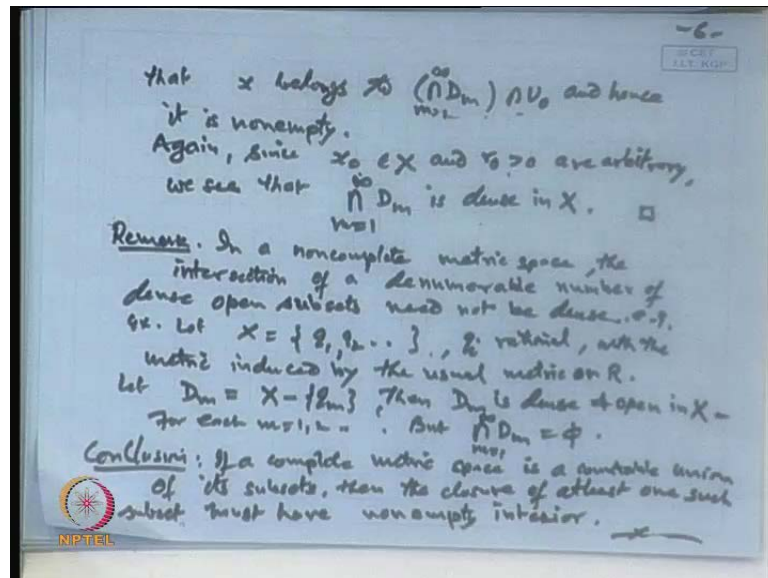 -6-
© CET
I.I.T. KGP
that x belongs to (∩_{m=1}^∞ D_m) ∩ U_0 and hence
it is nonempty.
Again, since x_0 ∈ X and r_0 > 0 are arbitrary,
we see that ∩_{m=1}^∞ D_m is dense in X. □
Remark. In a noncomplete metric space, the
intersection of a denumerable number of
dense open subsets need not be dense. e.g.
Ex. Let X = {q_1, q_2 ...}, q_i rational, with the
metric induced by the usual metric on R.
Let D_m = X - {q_m}, Then D_m is dense & open in X -
For each m=1,2,.. . But ∩_{m=1}^∞ D_m = φ.
Conclusion: If a complete metric space is a countable union
of its subsets, then the closure of atleast one such
subset must have nonempty interior.
NPTEL